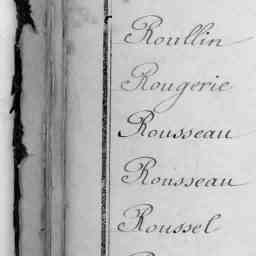 Roullin
Rougerie
Rousseau
Rousseau
Roussel